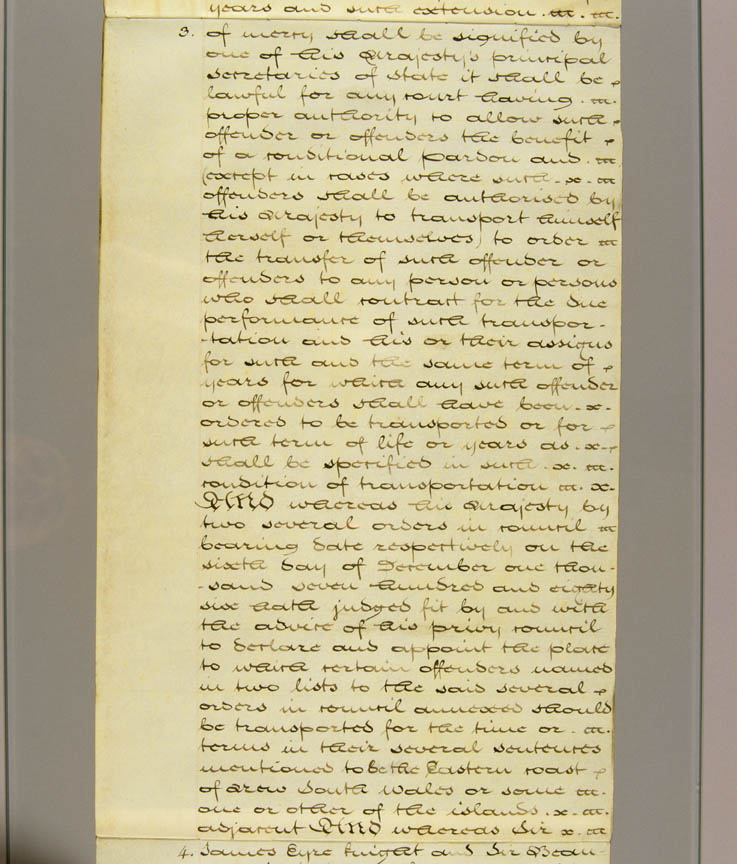 years and such extension
3. of mercy shall be signified by
one of his Majesty's principal
secretaries of state it shall be
lawful for any court having
proper authority to allow such
offender or offenders the benefit
of a conditional pardon and
(except in cases where such
offenders shall be authorised by
his Majesty to transport himself
herself or themselves) to order
the transfer of such offender or
offenders to any person or persons
who shall contract for the due
performance of such transpor-
-tation and his or their assigns
for such and the same term of
years for which any such offender
or offenders shall have been
ordered to be transported or for
such term of life or years as
shall be specified in such
condition of transportation
AND whereas his Majesty by
two several orders in council
bearing date respectively on the
sixth day of December one thou-
-sand seven hundred and eighty
six hath judged fit by and with
the advice of his privy council
to declare and appoint the place
to which certain offenders named
in two lists to the said several
orders in council annexed should
be transported for the time or
terms in their several sentences
mentioned to be the Eastern coast
of New South Wales or some
one or other of the islands
adjacent AND whereas Sir
4. James Eyre knight and Sir Beau-